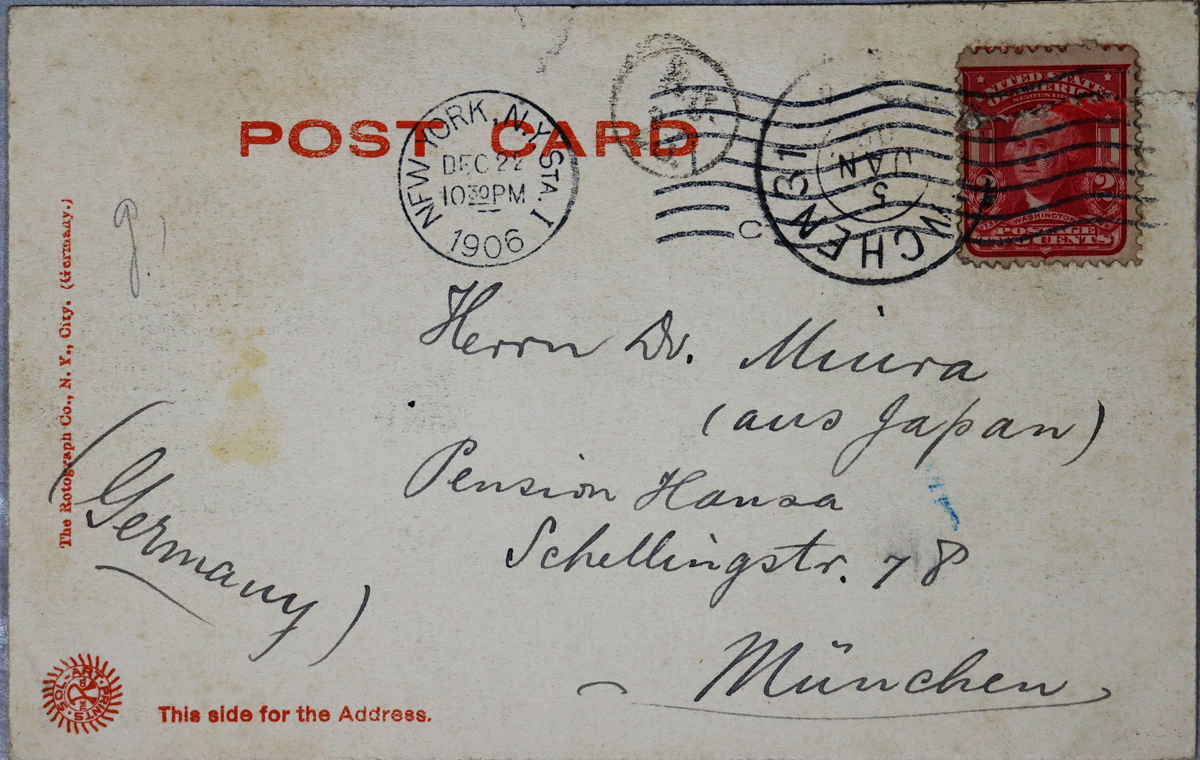 POST CARD
NEW YORK, N.Y. STA. I
DEC 22
10 30 PM
1906
C
CHEN 31
5
JAN
UNITED STATES
OF AMERICA
2 2
WASHINGTON
POSTAGE
TWO CENTS
Herrn Dr. Miura
(aus Japan)
Pension Hansa
Schellingstr. 78
München
(Germany)
The Rotograph Co., N. Y., City. (Germany.)
SOL-ART PRINTS
This side for the Address.